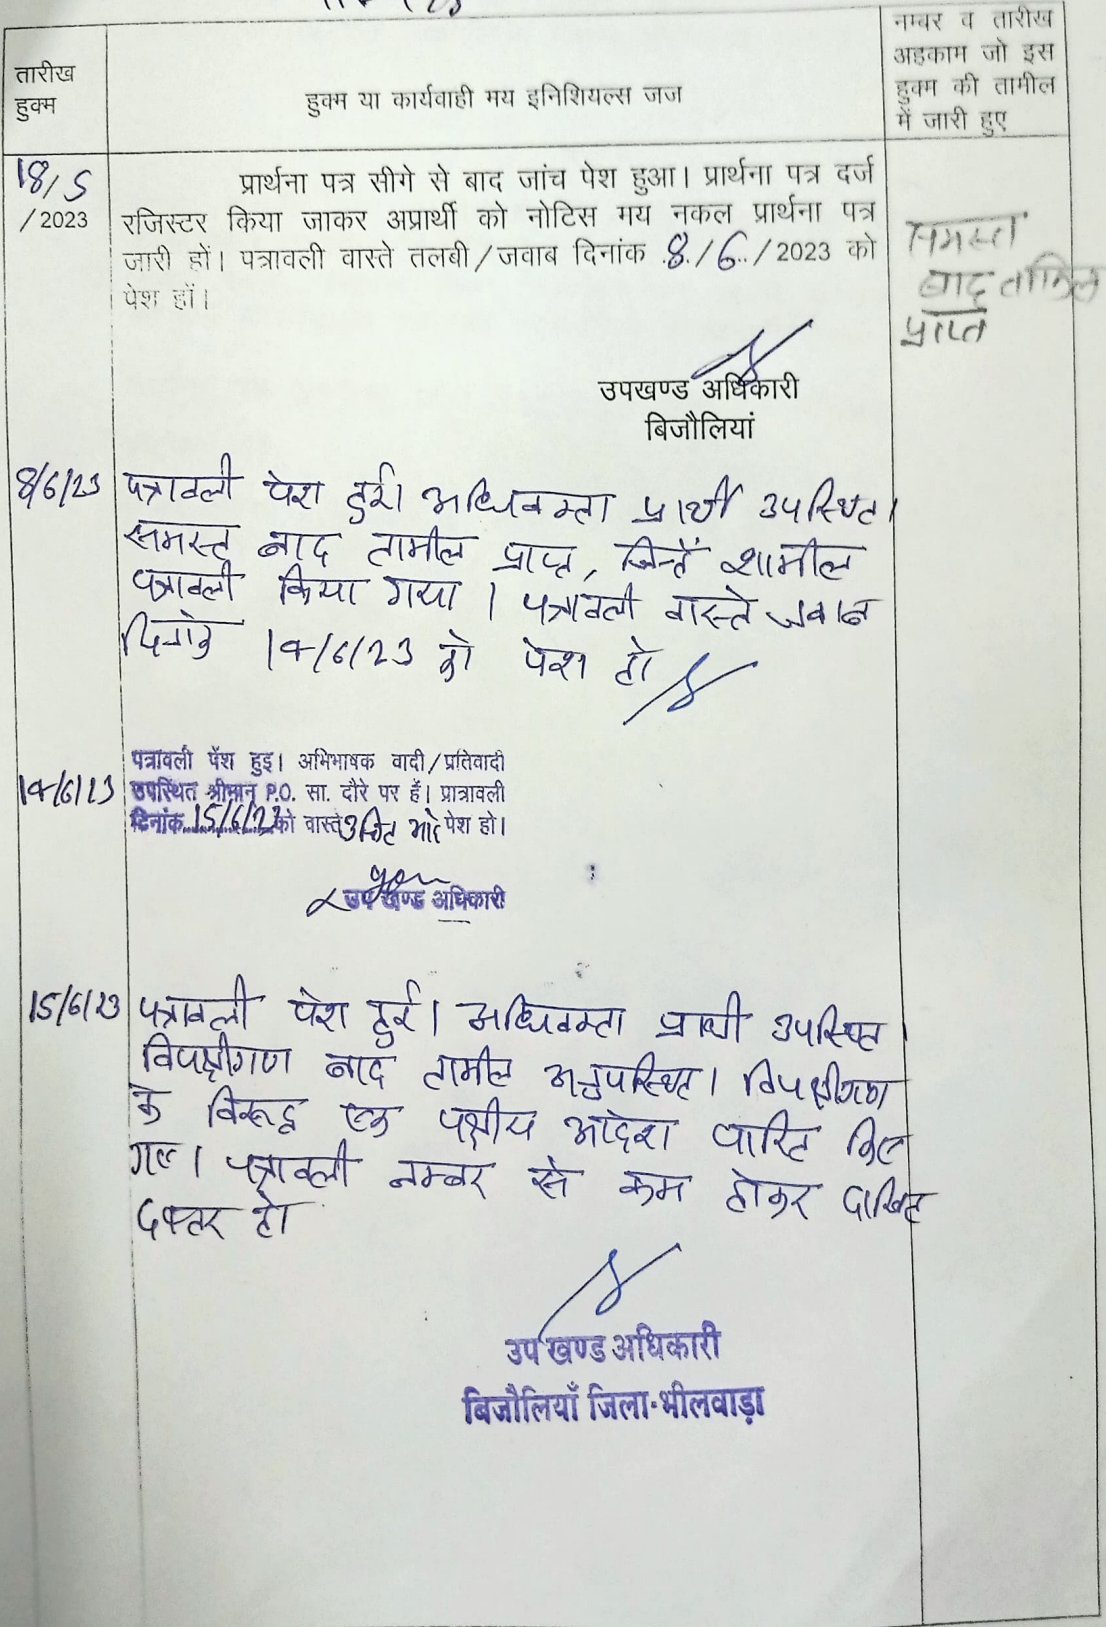 तारीख
हुक्म
हुक्म या कार्यवाही मय इनिशियल्स जज
नम्बर व तारीख
अहकाम जो इस
हुक्म की तामील
में जारी हुए
18/5
/2023
प्रार्थना पत्र सीगे से बाद जांच पेश हुआ। प्रार्थना पत्र दर्ज
रजिस्टर किया जाकर अप्रार्थी को नोटिस मय नकल प्रार्थना पत्र
जारी हों। पत्रावली वास्ते तलबी/जवाब दिनांक 8/6/2023 को
पेश हों।
समस्त
बाद तामिल
प्राप्त
उपखण्ड अधिकारी
बिजौलियां
8/6/23 पत्रावली पेश हुई। अधिवक्ता प्रार्थी उपस्थित।
समस्त बाद तामील प्राप्त, जिन्हें शामील
पत्रावली किया गया। पत्रावली वास्ते जवाब
दिनांक 14/6/23 को पेश हो
14/6/23
पत्रावली पेंश हुइ। अभिभाषक वादी/प्रतिवादी
उपस्थित श्रीमान् P.O. सा. दौरे पर हैं। प्रात्रावली
दिनांक 15/6/23 को वास्ते उचित आदे पेश हो।
उप खण्ड अधिकारी
15/6/23 पत्रावली पेश हुई। अधिवक्ता प्रार्थी उपस्थित
विपक्षीगण बाद तामील अनुपस्थित। विपक्षीगण
के विरूद्ध एक पक्षीय आदेश पारित किए
गए। पत्रावली नम्बर से कम होकर दाखिल
दफ्तर हो
उप खण्ड अधिकारी
बिजौलियाँ जिला-भीलवाड़ा